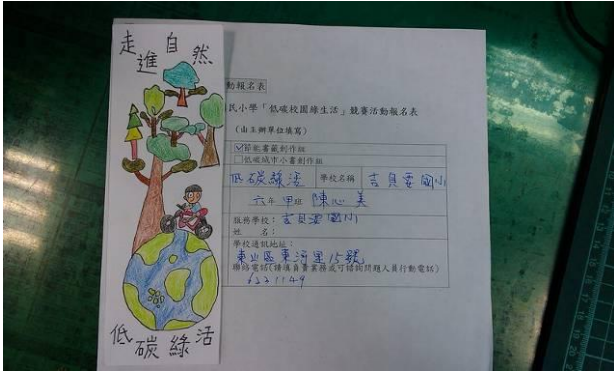 走進自然
低碳綠活
動報名表
民小學「低碳校園綠生活」競賽活動報名表
（由主辦單位填寫）
☑節能書籤創作組
☐低碳城市小書創作組
低碳綠活 學校名稱 吉貝耍國小
六年 甲班 陳心美
服務學校：吉貝耍國小
姓 名：
學校通訊地址：
東山區東河里15號
聯絡電話(請填負責業務或可諮詢問題人員行動電話)
6231149